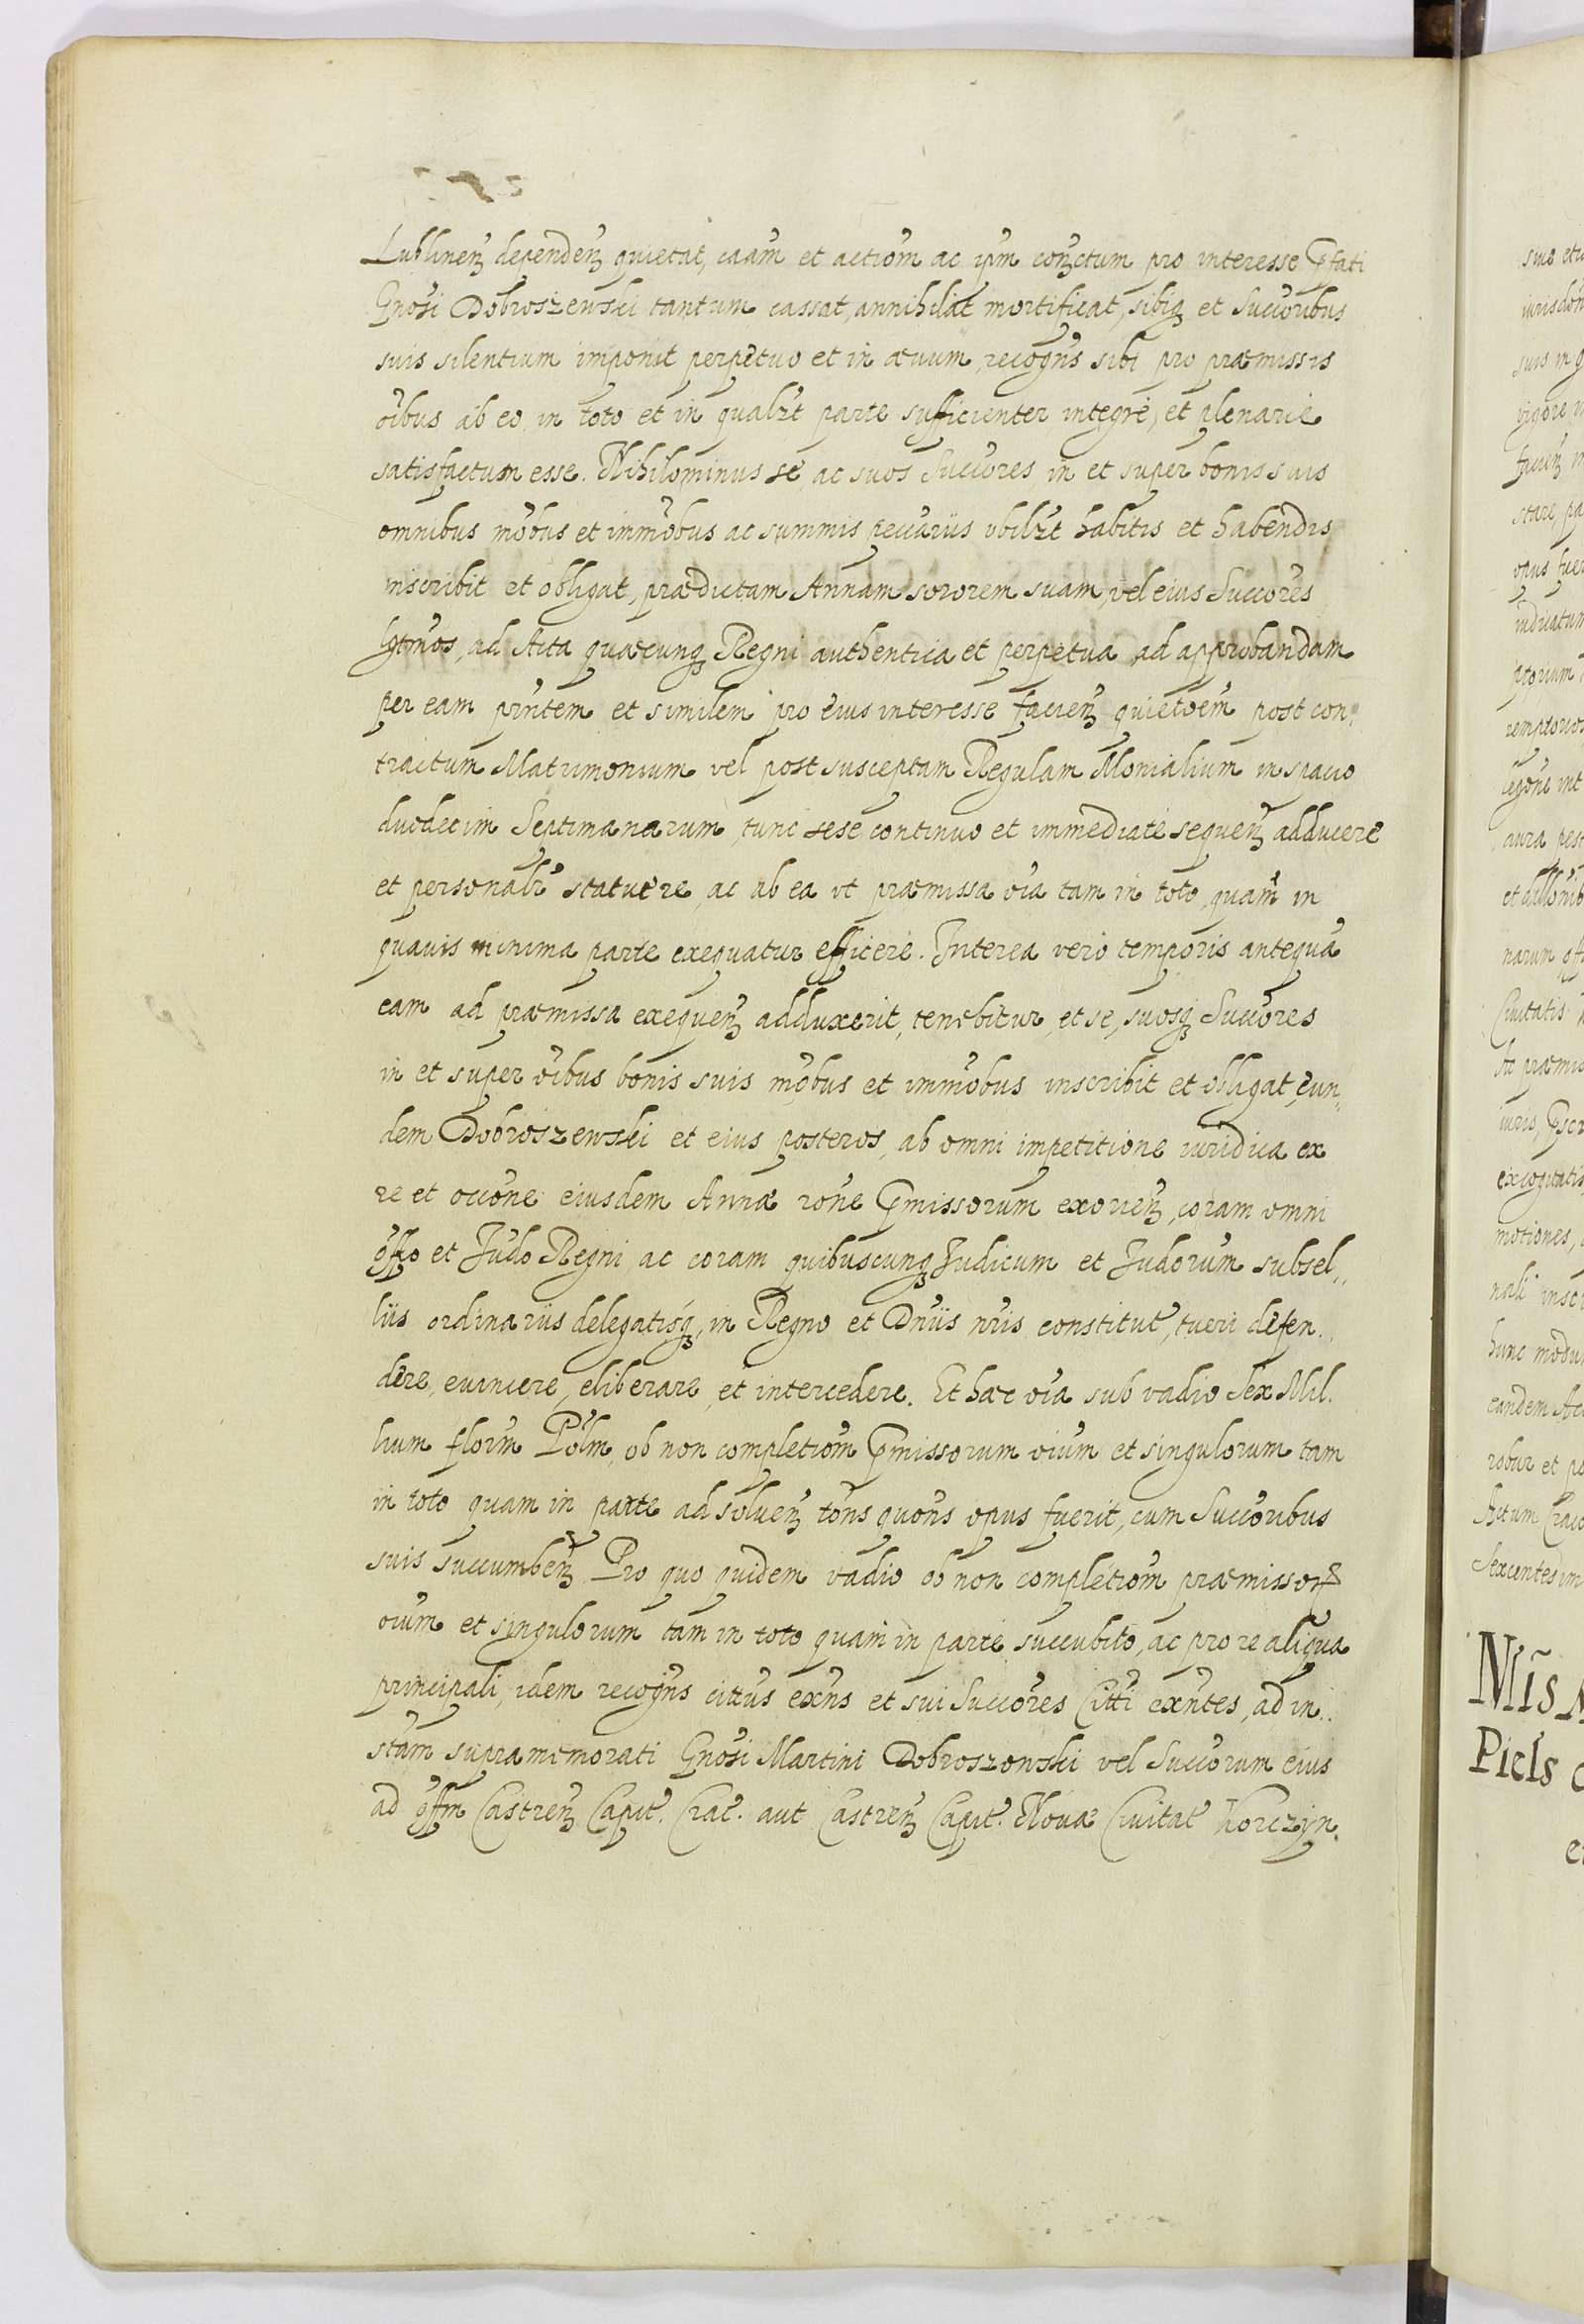 Lublineñ dependeñ quietat, caãm et actiom̃ ac ip̃m contꝫctum pro interesse p̃fati
Gnosi Dobroszewski tantum cassat, annihilat, mortificat, sibiqꝫ et Succoribus
suis silentium imponit perpetuo et in æuum, recogñs sibi pro præmissis
oibus ab eo in toto et in qualꝫt parte sufficienter integrè, et plenariè
satisfactum esse. Nihilominus se ac suos Succores in et super bonis suis
omnibus mobus et immobus ac summis peccariis vbilꝫt habitis et habendis
inscribit et obligat, prædictam Annam sororem suam, vel eius Succores
lgtmos, ad Acta quæcunqꝫ Regni authentica et perpetua ad approbandam
per eam pñtem et similem pro eius interesse facieñ quietoem post con„
tractum Matrimonium vel post susceptam Regulam Monialium in spacio
duodecim Septimanarum, tunc sese continuo et immediatè sequeñ adducere
et personalr statuere, ac ab ea vt præmissa oia tam in toto, quam in
quauis minima parte exequatur efficere. Interea verò temporis antequã
eam ad præmissa exequeñ adduxerit, tenebitur, et se, suosqꝫ Succores
in et super oibus bonis suis mobus et immobus inscribit et obligat, eun„
dem Dobroszewski et eius posteros, ab omni impetitione iuridica ex
re et occone eiusdem Annæ rone p̃missorum exorieñ, coram omni
offo et Judo Regni ac coram quibuscunqꝫ Judicum et Judorum subsel„
liis ordinariis delegatisqꝫ, in Regno et Dniis nris constitut, tueri defen„
dere, euincere, eliberare, et intercedere. Et hæc oia sub vadio Sex Mil.
lium florm Polm, ob non completiom̃ p̃missorum oium et singulorum tam
in toto quam in parte ad solueñ tons quons opus fuerit, cum Succoribus
suis succumbeñ. Pro quo quidem vadio ob non completiom̃ præmissorꝝ
oium et singulorum tam in toto quam in parte succubito, ac pro re aliqua
principali, idem recogñs cittus exñs et sui Succores Citti exñtes, ad in„
stam supramemorati Gnosi Martini Dobroszowski vel Succorum eius
ad offm Castreñ Capit. Crac. aut Castreñ Capit. Nouæ Ciuitat Korczyn.